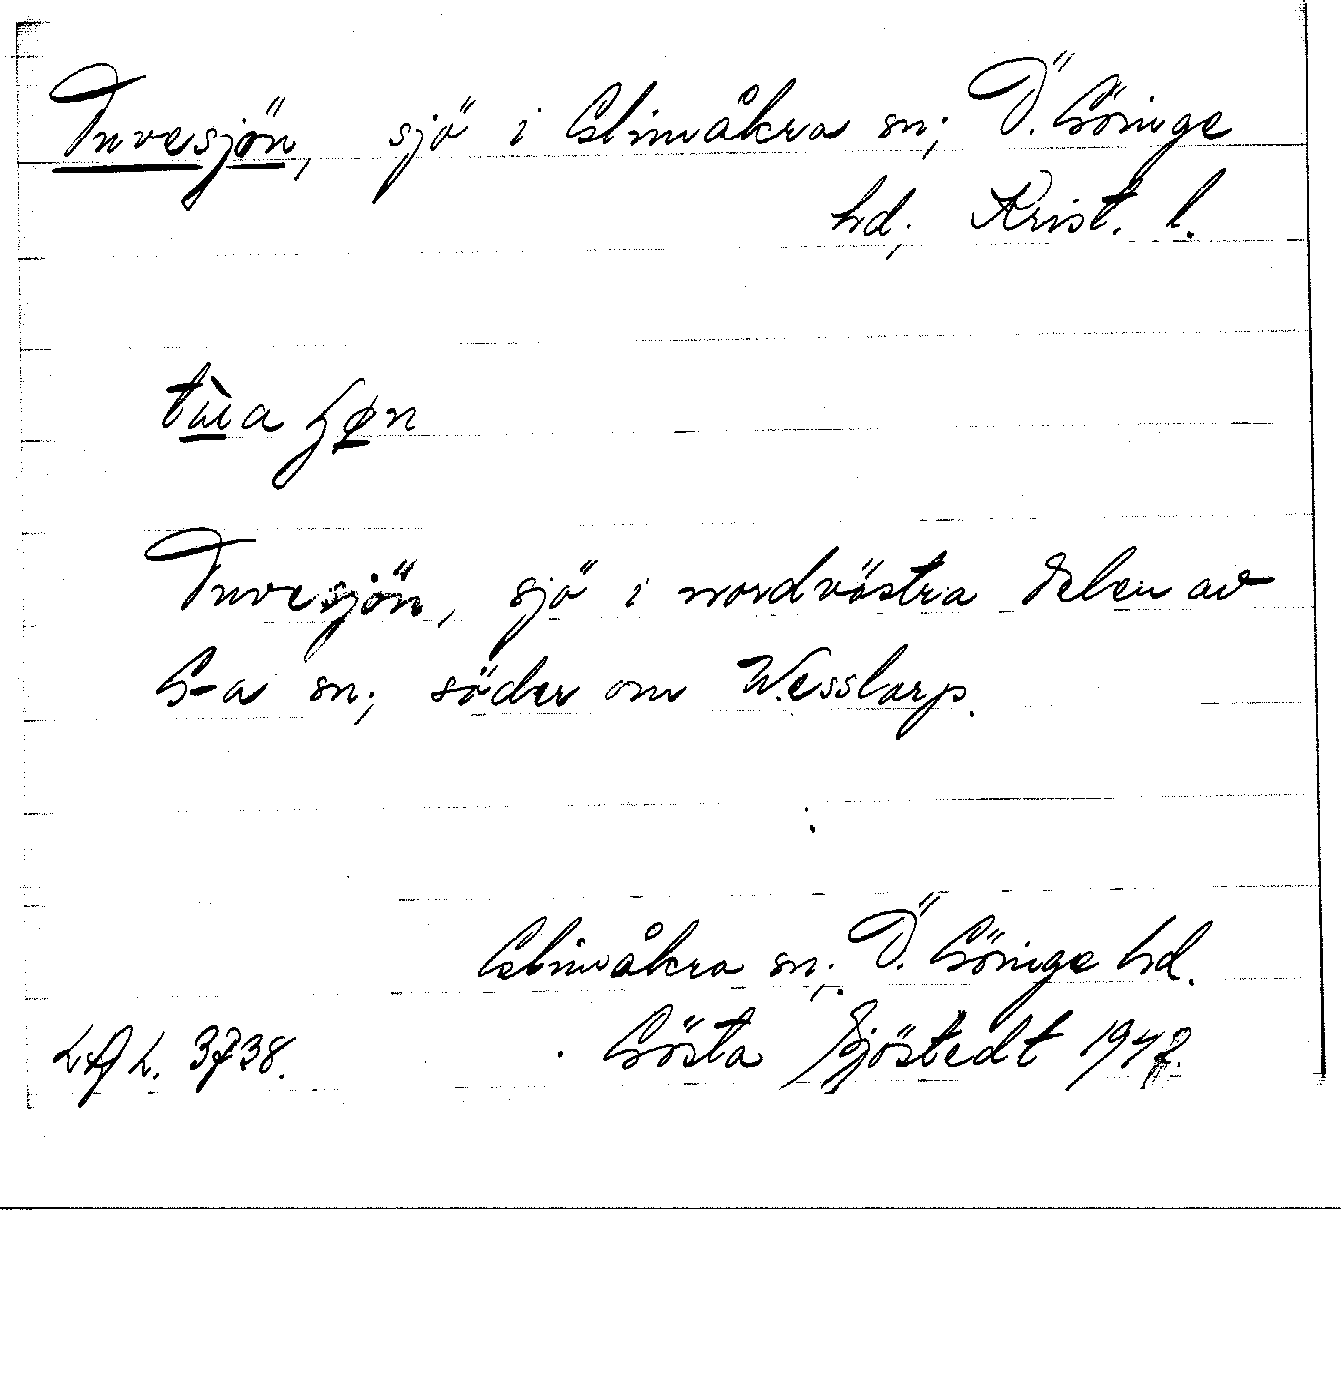 Tuvesjön, sjö i Glimåkra sn; Ö. Göinge
hd; Krist. l.
Tuvesjön, sjö i nordvästra delen av
G-a sn; söder om Wesslarp.
Glimåkra sn; Ö. Göinge hd.
3738. Gösta Sjöstedt 1947.